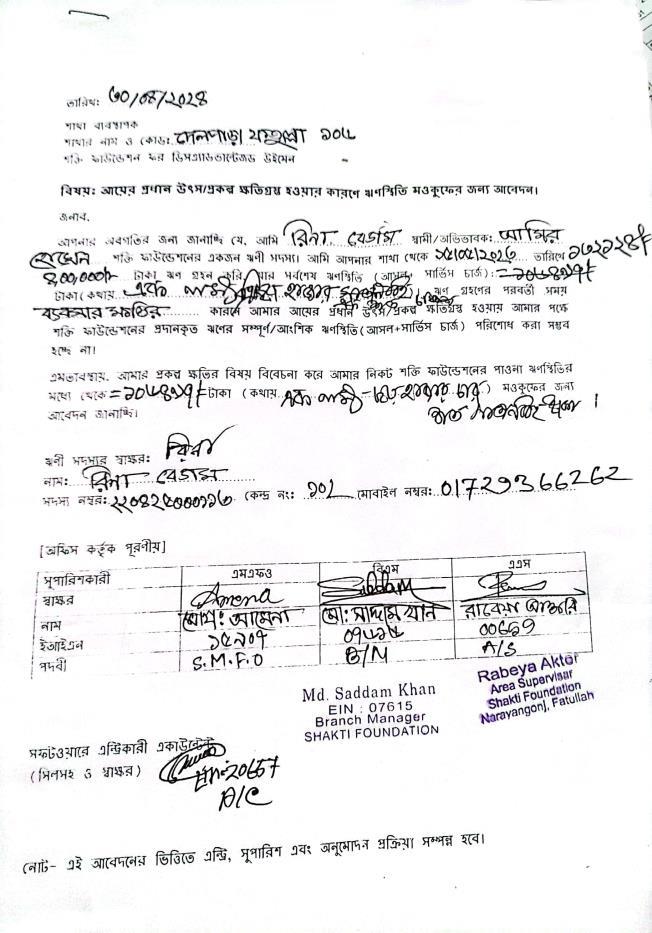 তারিখঃ ৩০/০৪/২০২৪
শাখা ব্যবস্থাপক
শাখার নাম ও কোডঃ দেলপাড়া ১০৬
শক্তি ফাউন্ডেশন ফর ডিসএ্যাডভান্টেজড উইমেন
বিষয়ঃ আয়ের প্রধান উৎস/প্রকল্প ক্ষতিগ্রস্ত হওয়ার কারণে ঋণস্থিতি মওকুফের জন্য আবেদন।
জনাব,
আপনার অবগতির জন্য জানাচ্ছি যে, আমি রিনা বেগম স্বামী/অভিভাবকঃ আমির
হোসেন শক্তি ফাউন্ডেশনের একজন ঋণী সদস্য। আমি আপনার শাখা থেকে তারিখে
টাকা ঋণ গ্রহন করি যার সর্বশেষ ঋণস্থিতি (আসল+সার্ভিস চার্জ):
টাকা (কথায় এক লক্ষ হাজার ঋণ গ্রহণের পরবর্তী সময়
কারণে আমার আয়ের প্রধান উৎস/প্রকল্প ক্ষতিগ্রস্ত হওয়ায় আমার পক্ষে
শক্তি ফাউন্ডেশনের প্রদানকৃত ঋণের সম্পূর্ণ/আংশিক ঋণস্থিতি (আসল+সার্ভিস চার্জ) পরিশোধ করা সম্ভব
হচ্ছে না।
এমতাবস্থায়, আমার প্রকল্প ক্ষতির বিষয় বিবেচনা করে আমার নিকট শক্তি ফাউন্ডেশনের পাওনা ঋণস্থিতির
মধ্যে থেকে টাকা (কথায় এক লক্ষ হাজার চার) মওকুফের জন্য
আবেদন জানাচ্ছি।
ঋণী সদস্যের স্বাক্ষরঃ রিনা
নামঃ রিনা বেগম
সদস্য নম্বরঃ কেন্দ্র নং: ১০২ মোবাইল নম্বরঃ 01729366262
[অফিস কর্তৃক পূরণীয়]
সুপারিশকারী এমএফও বিএম এএস
স্বাক্ষর Amena Saddam
নাম মোছাঃ আমেনা মোঃ সাদ্দাম খান রাবেয়া আক্তার
ইআইএন ১৫৯০৭ ০৭৬১৫ 00669
পদবী S.M.F.O B/M A/S
Md. Saddam Khan
EIN : 07615
Branch Manager
SHAKTI FOUNDATION
Rabeya Akter
Area Supervisar
Shakti Foundation
Narayangonj, Fatullah
সফটওয়্যারে এন্ট্রিকারী একাউন্টেন্ট
(সিলসহ ও স্বাক্ষর) 20657
A/C
নোট- এই আবেদনের ভিত্তিতে এন্ট্রি, সুপারিশ এবং অনুমোদন প্রক্রিয়া সম্পন্ন হবে।